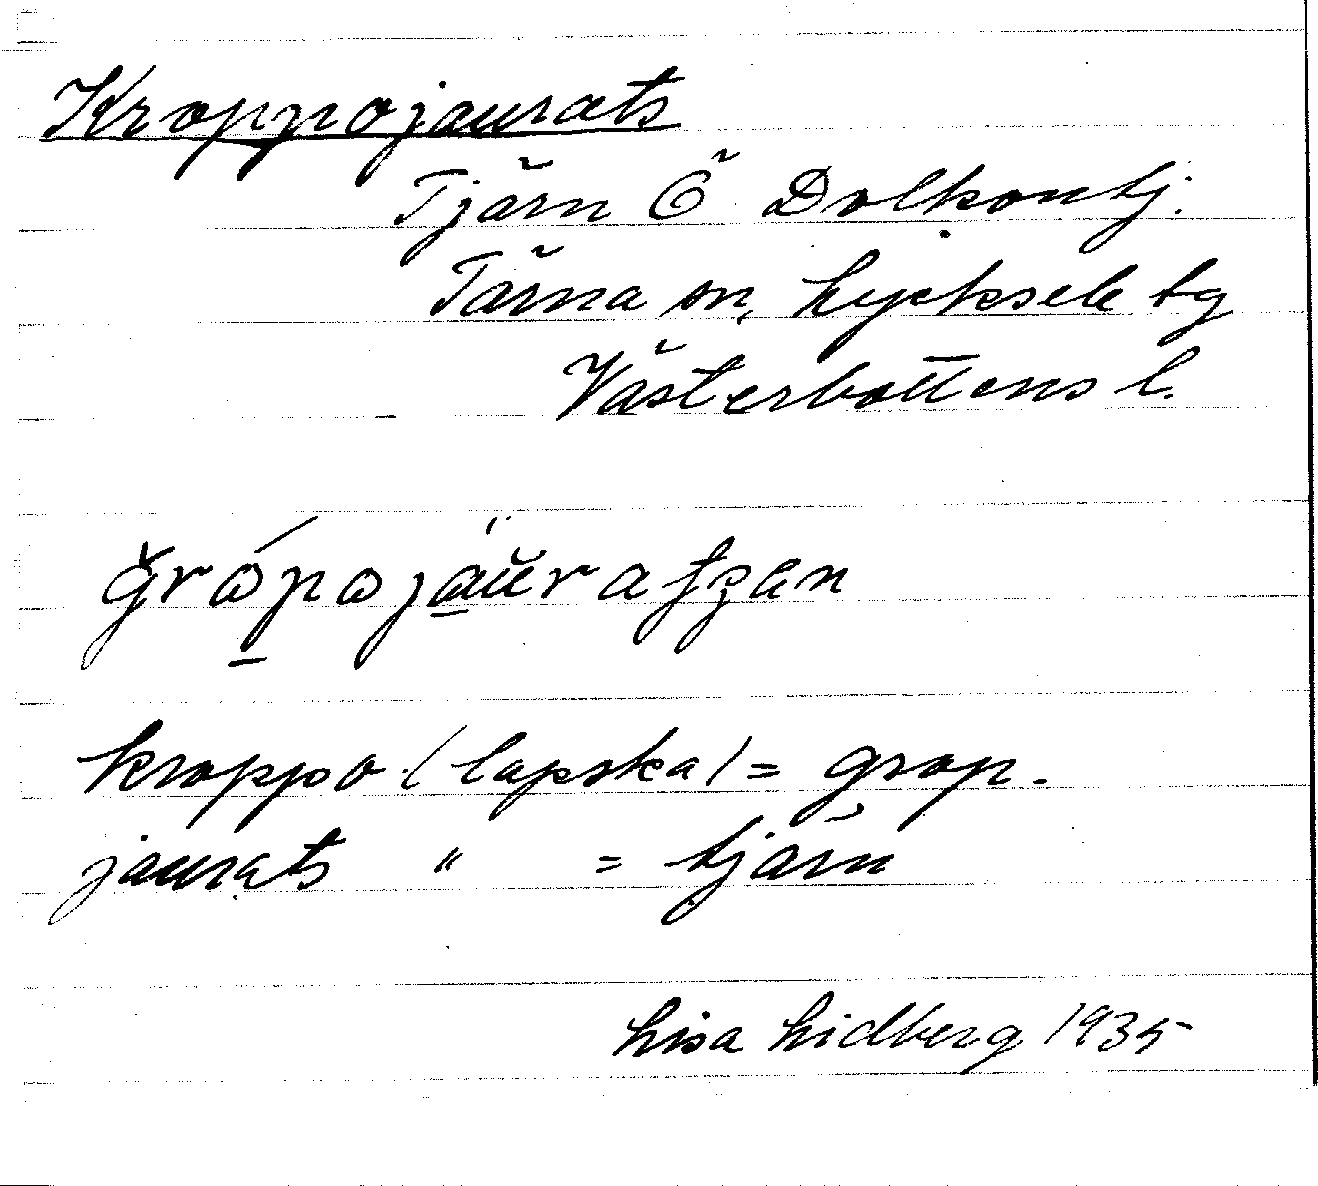 Kroppojaurats
Tjärn Ö Dolkontj.
Tärna sn, Lycksele tg
Västerbottens l.
kroppo (lapska) = grop.
jaurats " = tjärn
Lisa Lidberg 1935